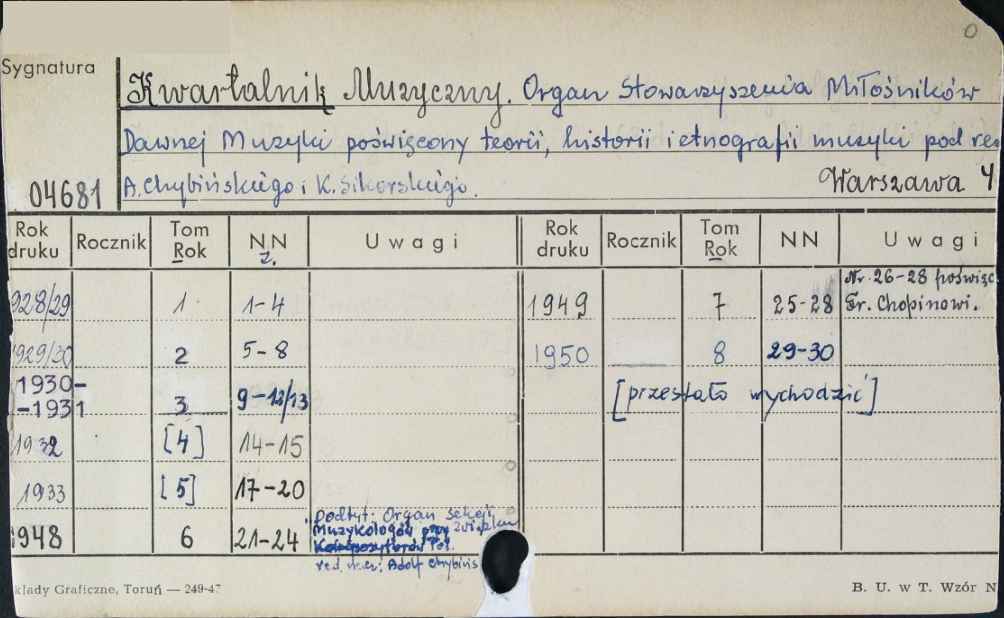 O
Sygnatura
Kwartalnik Muzyczny. Organ Stowarzyszenia Miłośników
Dawnej Muzyki poświęcony teorii, historii i etnografii muzyki pod re
04681 A. Chybińskiego i K. Sikorskiego. Warszawa 4
Rok druku Rocznik Tom Rok NN z. Uwagi Rok druku Rocznik Tom Rok NN Uwagi
928/29 1 1-4 1949 7 25-28 Nr. 26-28 poświęc. Fr. Chopinowi.
1929/30 2 5-8 1950 8 29-30
1930-1931 3 9-12/13 [przestało wychodzić]
1932 [4] 14-15
1933 [5] 17-20
1948 6 21-24 Podtyt: Organ Sekcji Muzykologów przy Związku Kompozytorów Pol. red. nacz: Adolf Chybińs
kłady Graficzne, Toruń — 249-47 B. U. w T. Wzór N